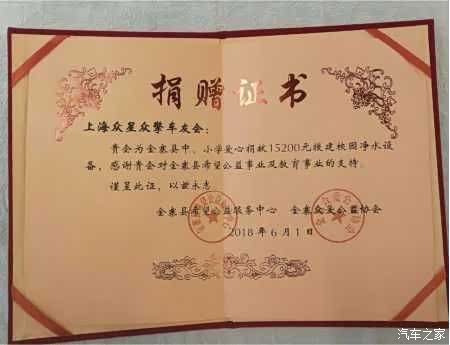 捐赠证书
上海众星众擎车友会：
贵会为金寨县中、小学爱心捐款15200元援建校园净水设
备，感谢贵会对金寨县希望公益事业及教育事业的支持。
谨呈此证，以兹永志
金寨县希望公益服务中心 金寨众大公益协会
2018年6月1日
汽车之家